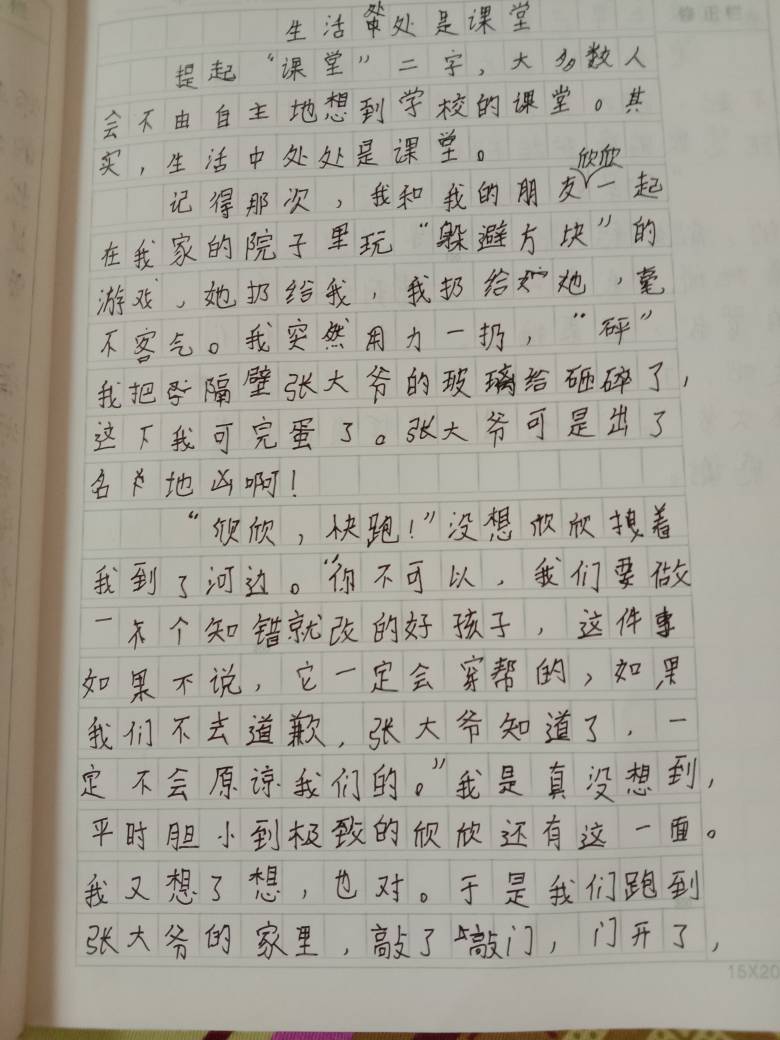 生活处处是课堂
提起“课堂”二字，大多数人
会不由自主地想到学校的课堂。其
实，生活中处处是课堂。
记得那次，我和我的朋友欣欣一起
在我家的院子里玩“躲避方块”的
游戏，她扔给我，我扔给她，毫
不客气。我突然用力一扔，“砰”
我把隔壁张大爷的玻璃给砸碎了，
这下我可完蛋了。张大爷可是出了
名地凶啊！
“欣欣，快跑！”没想欣欣拽着
我到了河边。“你不可以，我们要做
一个知错就改的好孩子，这件事
如果不说，它一定会穿帮的，如果
我们不去道歉，张大爷知道了，一
定不会原谅我们的。”我是真没想到，
平时胆小到极致的欣欣还有这一面。
我又想了想，也对。于是我们跑到
张大爷的家里，敲了敲门，门开了，
15X20